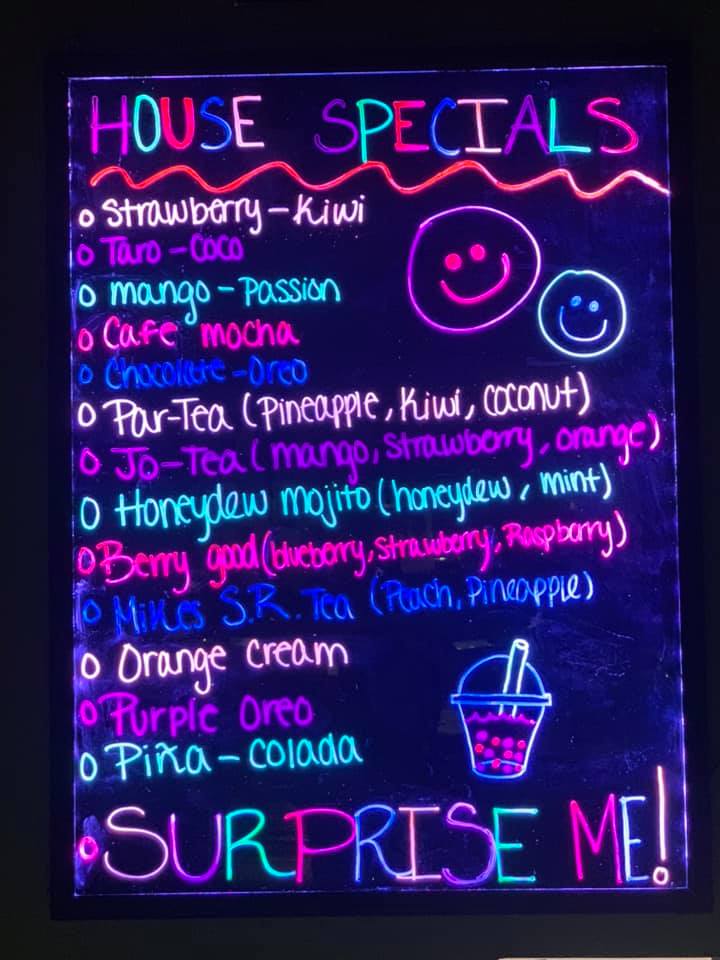 HOUSE SPECIALS
o Strawberry-Kiwi
o Taro-Coco
o mango-Passion
o Cafe mocha
o Chocolate-Oreo
o Par-Tea (Pineapple, Kiwi, Coconut)
o Jo-Tea (mango, Strawberry, orange)
o Honeydew mojito (honeydew, mint)
o Berry good (blueberry, Strawberry, Raspberry)
o Mikes S.R. Tea (Peach, Pineapple)
o Orange cream
o Purple Oreo
o Piña-colada
o SURPRISE ME!